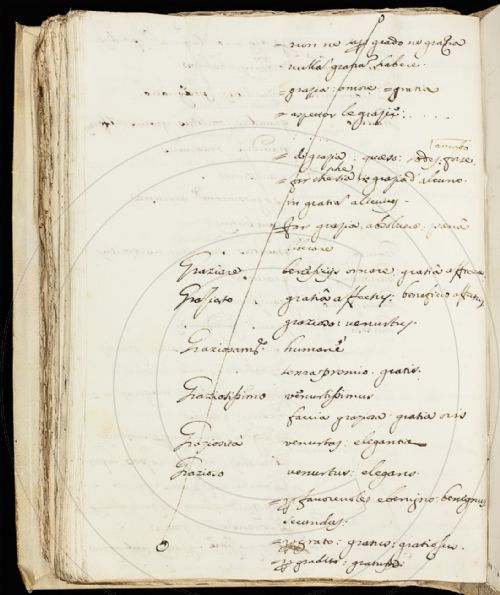 = non ne grado ne grazia
nulla gratia habere.
= grazia: amore = gratia
= aspettar le grazie: . . . . .
amabo
= di grazia: quaeso: sodes: forse
= far che stia in grazia d' alcuno.
in gratia alicuius
= far grazia, absolvere: poena
Graziare beneficijs ornare, gratia afficere
Graziato gratia affectus: beneficio affectus
graziado: venustus.
Graziosamte. humane
senza premio. gratis.
Graziosissimo venustissimus
faccia graziosa. gratia oris
Graziosità venustas: elegantia
Grazioso venustus: elegans.
= p favorevole, e benigno, benignus
secundus.
= p grato: gratus: gratiosus.
= p gradito: gratus: